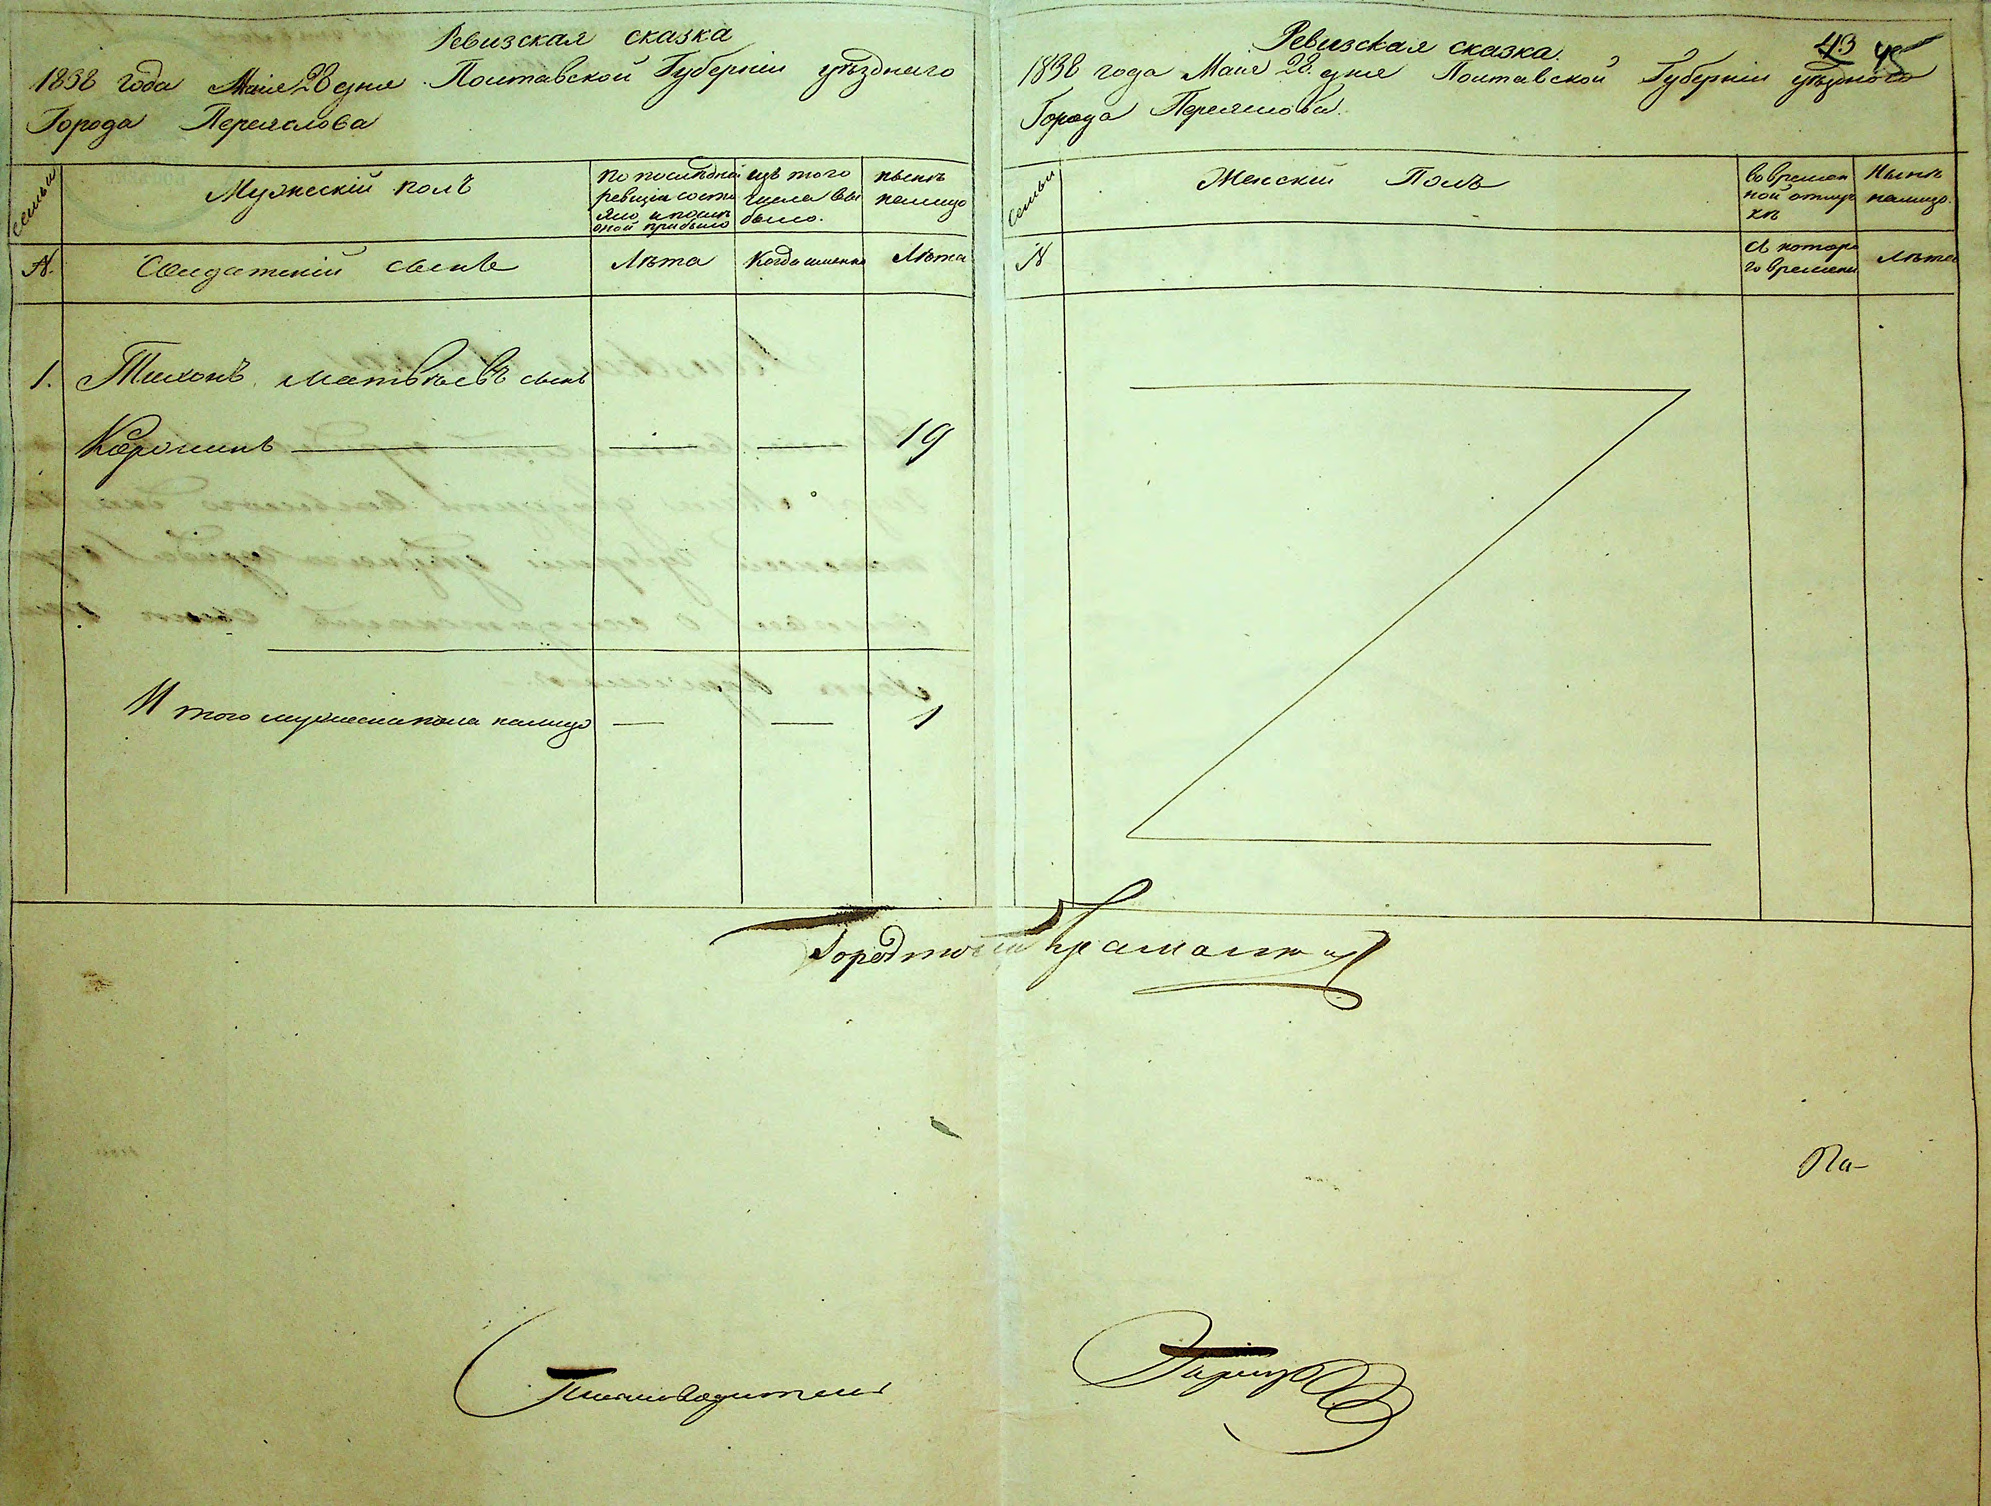 Ревизская сказка
1838 года Маія 28 дня Полтавской Губерніи уѣзднаго
Города Переяслова
семьи
Мужескій полъ
по послѣдней
ревизіи состо
яло и послѣ
оной прибыло
изъ того
числа вы
было.
нынѣ
налицо
№.
Солдатскій сынъ
Лѣта
Когда именно
Лѣта
1. Тихонъ Матвѣевъ сынъ
19
Итого мужеска пола налицо — — 1
Ревизская сказка.
43
45
1838 года Маия 28 дня Полтавской Губерніи уѣзднаго
Города Переяслова.
семьи
Женскій Полъ
во времен
ной отлуч
кѣ
Нынѣ
налицо.
№
съ котора
го времени
Лѣта
Городничій
Па-
Письмоводитель